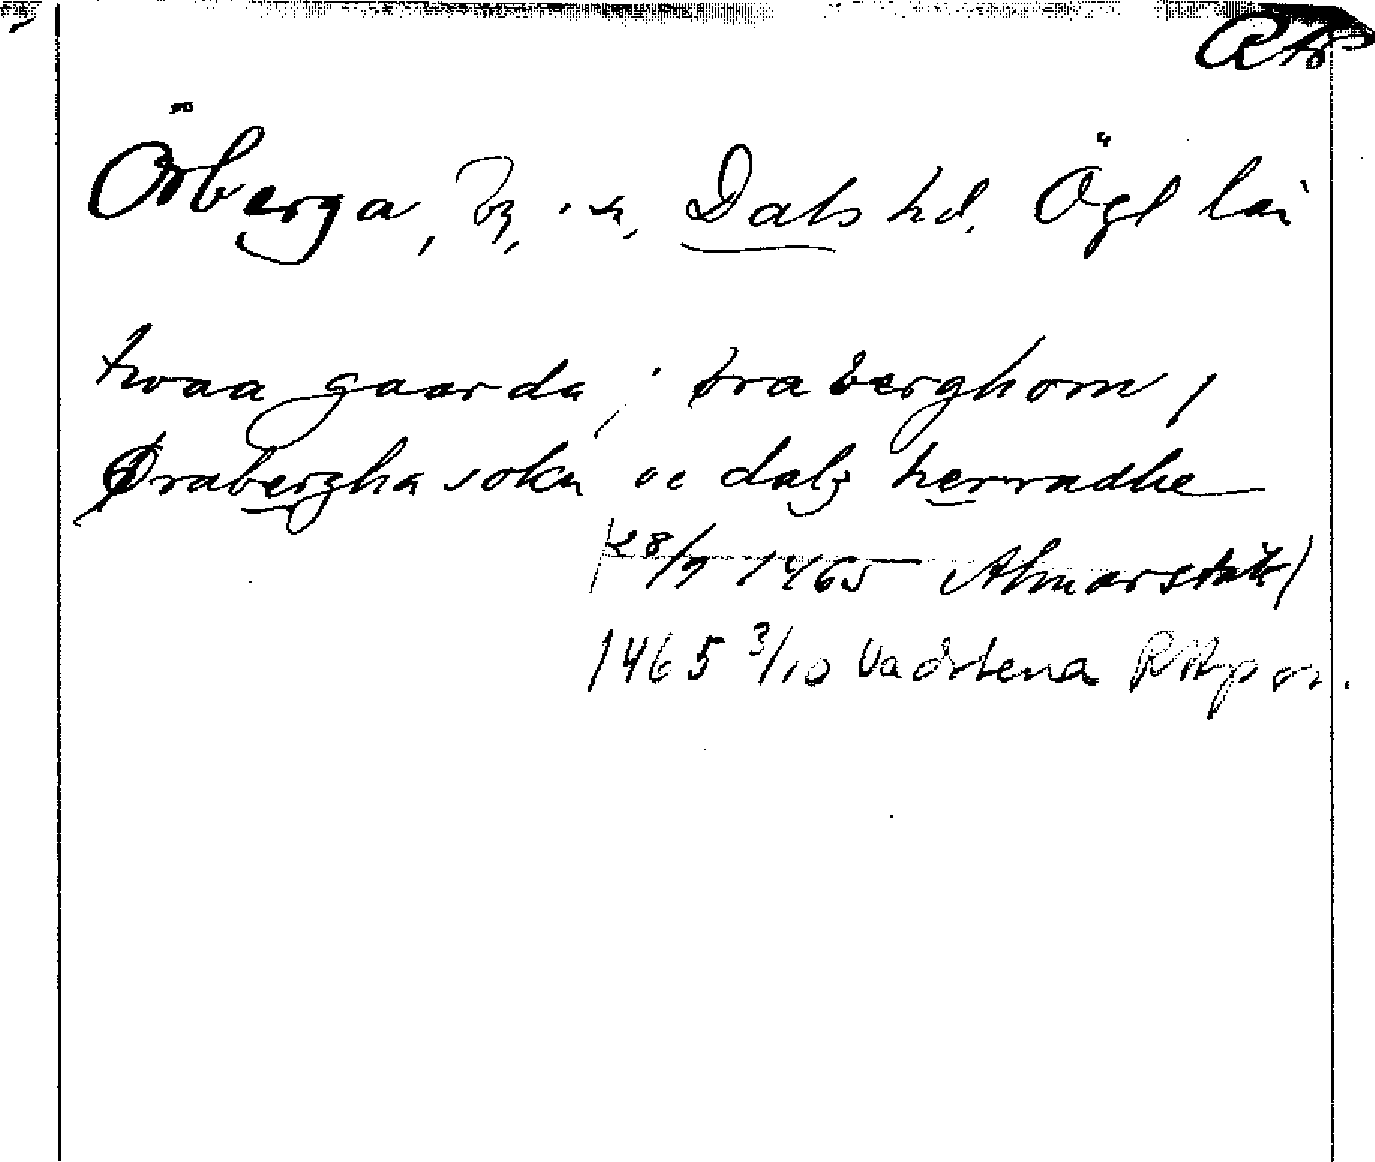 Örberga, by, sn, Dals hd. Ögl län
twaa gaarda i øraberghom i
Ørabergha sokn oc dalz herradhe
28/9 1465 Almarstäk)
1465 3/10 Vadstena RAp or.